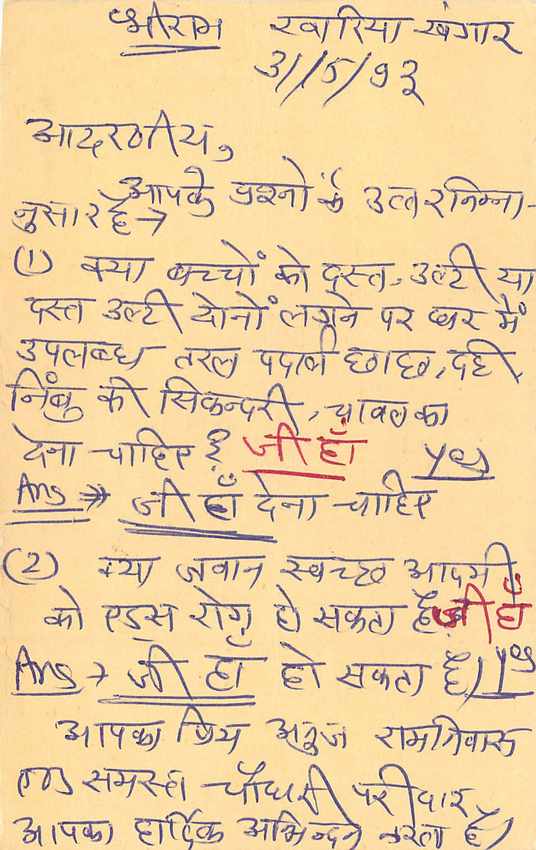 श्रीराम खारिया खंगार
31/5/93
आदरणीय,
आपके प्रश्नों के उत्तर निम्ना-
नुसार हैं →
(1) क्या बच्चों को दस्त, उल्टी या
दस्त उल्टी दोनों लगने पर घर में
उपलब्ध तरल पदार्थ छाछ, दही,
निंबु की सिकन्दरी, चावल का
देना चाहिए ? जी हाँ yes
Ans → जी हाँ देना चाहिए
(2) क्या जवान स्वच्छ आदमी
को एड्स रोग हो सकता है जी हाँ
Ans → जी हाँ हो सकता है। Yes
आपका प्रिय अनुज रामनिवास
एवं समस्त चौधरी परिवार
आपका हार्दिक अभिन्दन करता है।